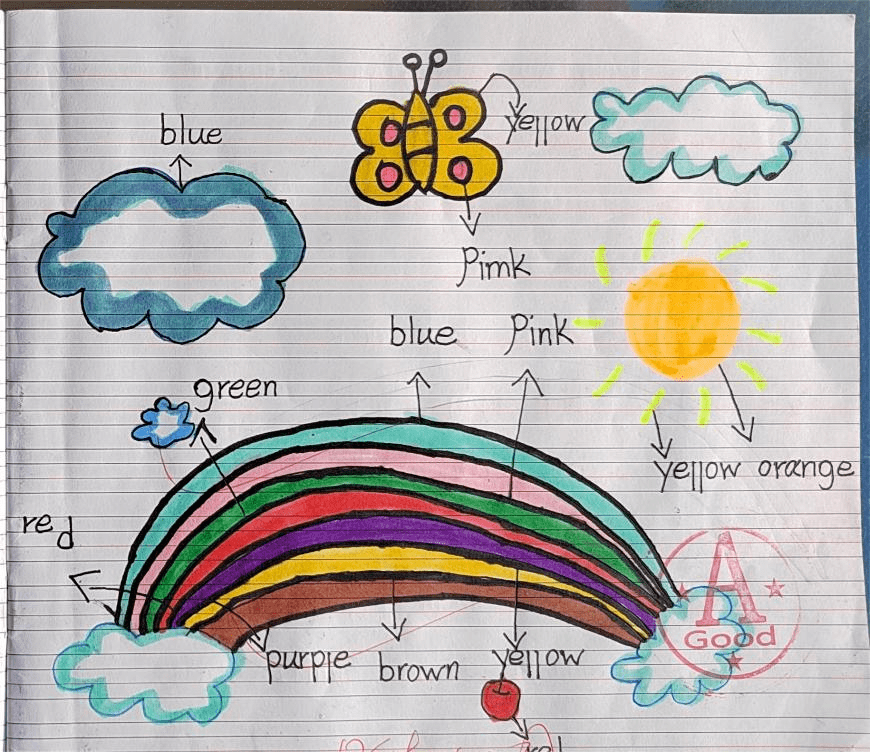 blue
yellow
Pimk
blue Pink
green
yellow orange
red
A
Good
purple brown yellow